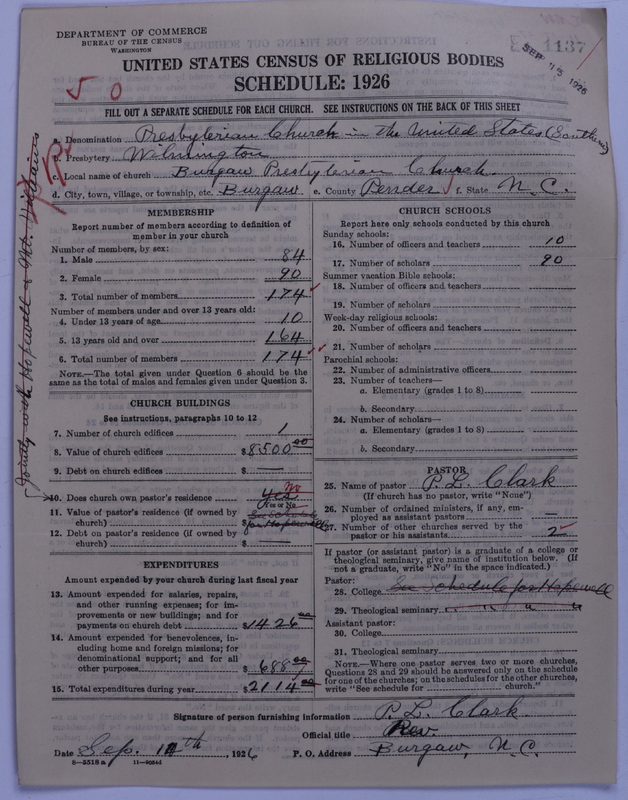 DEPARTMENT OF COMMERCE
BUREAU OF THE CENSUS
WASHINGTON
1137
SEP 15 1926
UNITED STATES CENSUS OF RELIGIOUS BODIES
SCHEDULE: 1926
5 0
FILL OUT A SEPARATE SCHEDULE FOR EACH CHURCH. SEE INSTRUCTIONS ON THE BACK OF THIS SHEET
a. Denomination Presbyterian Church in the United States (Southern)
b. Presbytery Wilmington
c. Local name of church Burgaw Presbyterian Church
d. City, town, village, or township, etc. Burgaw e. County Pender f. State N.C.
Jointly with Hopewell & Mt. Williams
MEMBERSHIP
Report number of members according to definition of
member in your church
Number of members, by sex:
1. Male 84
2. Female 90
3. Total number of members 174
Number of members under and over 13 years old:
4. Under 13 years of age 10
5. 13 years old and over 164
6. Total number of members 174
NOTE.—The total given under Question 6 should be
same as the total of males and females given under Question 3.
CHURCH BUILDINGS
See instructions, paragraphs 10 to 12
7. Number of church edifices 1
8. Value of church edifices $8500.00
9. Debt on church edifices $ —
10. Does church own pastor's residence Yes No
Yes or No
11. Value of pastor's residence (if owned by
church) $ See Schedule for Hopewell
12. Debt on pastor's residence (if owned by
church) $ —
EXPENDITURES
Amount expended by your church during last fiscal year
13. Amount expended for salaries, repairs,
and other running expenses; for im-
provements or new buildings; and for
payments on church debt $1426.00
14. Amount expended for benevolences, in-
cluding home and foreign missions; for
denominational support; and for all
other purposes $688.00
15. Total expenditures during year $2114.00
CHURCH SCHOOLS
Report here only schools conducted by this church
Sunday schools:
16. Number of officers and teachers 10
17. Number of scholars 90
Summer vacation Bible schools:
18. Number of officers and teachers
19. Number of scholars
Week-day religious schools:
20. Number of officers and teachers
21. Number of scholars
Parochial schools:
22. Number of administrative officers
23. Number of teachers—
a. Elementary (grades 1 to 8)
b. Secondary
24. Number of scholars—
a. Elementary (grades 1 to 8)
b. Secondary
PASTOR
25. Name of pastor P. L. Clark
(If church has no pastor, write "None")
26. Number of ordained ministers, if any, em-
ployed as assistant pastors —
27. Number of other churches served by the
pastor or his assistants 2
If pastor (or assistant pastor) is a graduate of a college or
theological seminary, give name of institution below. (If
not a graduate, write "No" in the space indicated.)
Pastor:
28. College See Schedule for Hopewell
29. Theological seminary " " " "
Assistant pastor:
30. College
31. Theological seminary
NOTE.—Where one pastor serves two or more churches,
Questions 28 and 29 should be answered only on the schedule
for one of the churches; on the schedules for the other churches,
write "See schedule for church."
Signature of person furnishing information P. L. Clark
Official title Rev.
Date Sep. 11th, 1926 P. O. Address Burgaw, N.C.
8—5518 a